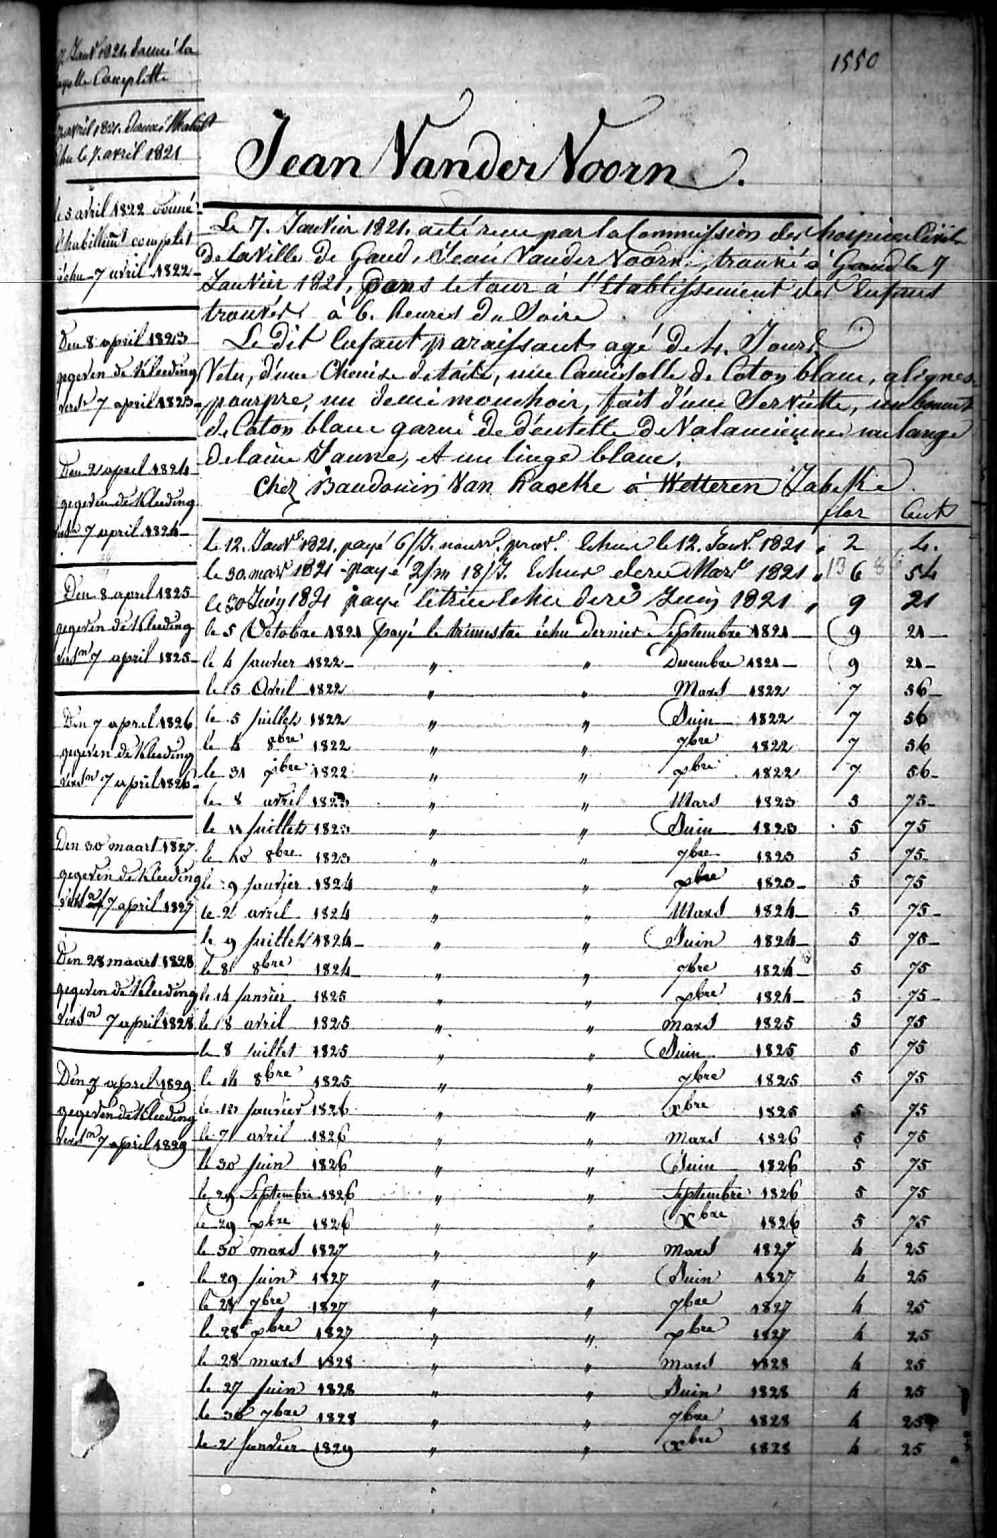 1550
7 Janv. 1821 donné la
Complette
avril 1821. donné
échu le 7. avril 1821
le 5 avril 1822 donné
l'habillem.t complet
échu 7 avril 1822
Den 8 april 1823
gegeven de Kleeding
7 april 1823
Den 2 april 1824
gegeven de Kleeding
7 april 1824
Den 8 april 1825
gegeven de Kleeding
7 april 1825
Den 7 april 1826
gegeven de Kleeding
7 april 1826
Den 30 maart 1827
gegeven de Kleeding
7 april 1827
Den 28 maart 1828
gegeven de Kleeding
7 april 1828
Den 7 april 1829
gegeven de Kleeding
7 april 1829
Jean Vander Voorn.
Le 7. Janvier 1821. a été recu par la Commission des hospices Civils
De la Ville de Gand, Jean Vander Voorn, trouvé à Gand le 7
Janvier 1821, Dans le tour à l'Etablissement des Enfans
trouvés à 6. heures du Soire
Le dit Enfant paraissant agé de 4. Jours
Vetu, d'une Chemise de toile, une Camisolle de Coton blanc, a lignes
pourpre, un demi mouchoir, fait d'une Serviette, un bonnet
de Coton blanc garni de dentelle de Valancienne un lange
de laine Jaune, et un linge blanc.
Chez Baudouin Van à Wetteren
flor Cents
le 12. Janv.r 1821. payé 6/J. nourr. prov. Echue le 12. Janv. 1821 2 4.
le 30. mars 1821 payé 2/m 18/J. Echus dere Mars 1821 6 54
le 30 Juin 1821 payé le trime Echu dere Juin 1821 9 21
le 5 Octobre 1821 payé le trimestre échu dernier Septembre 1821 9 21
le 4 Janvier 1822 " " Decembre 1821 9 21
le 5 Avril 1822 " " Mars 1822 7 56
le 5 Juillet 1822 " " Juin 1822 7 56
le 4 8bre 1822 " " 7bre 1822 7 56
le 31 xbre 1822 " " xbre 1822 7 56
le 8 avril 1823 " " Mars 1823 5 75
le 11 Juillet 1823 " " Juin 1823 5 75
le 10 8bre 1823 " " 7bre 1823 5 75
le 9 Janvier 1824 " " xbre 1823 5 75
le 2 avril 1824 " " Mars 1824 5 75
le 9 Juillet 1824 " " Juin 1824 5 75
le 8 8bre 1824 " " 7bre 1824 5 75
le 14 Janvier 1825 " " xbre 1824 5 75
le 8 avril 1825 " " mars 1825 5 75
le 8 Juillet 1825 " " Juin 1825 5 75
le 14 8bre 1825 " " 7bre 1825 5 75
le Janvier 1826 " " xbre 1825 5 75
le 7 avril 1826 " " Mars 1826 5 75
le 30 Juin 1826 " " Juin 1826 5 75
le 29 Septembre 1826 " " Septembre 1826 5 75
le 29 xbre 1826 " " Xbre 1826 5 75
le 30 mars 1827 " " Mars 1827 4 25
le 29 Juin 1827 " " Juin 1827 4 25
le 28 7bre 1827 " " 7bre 1827 4 25
le 28 xbre 1827 " " xbre 1827 4 25
le 28 mars 1828 " " mars 1828 4 25
le 27 Juin 1828 " " Juin 1828 4 25
le 30 7bre 1828 " " 7bre 1828 4 25
le 2 Janvier 1829 " " xbre 1828 4 25